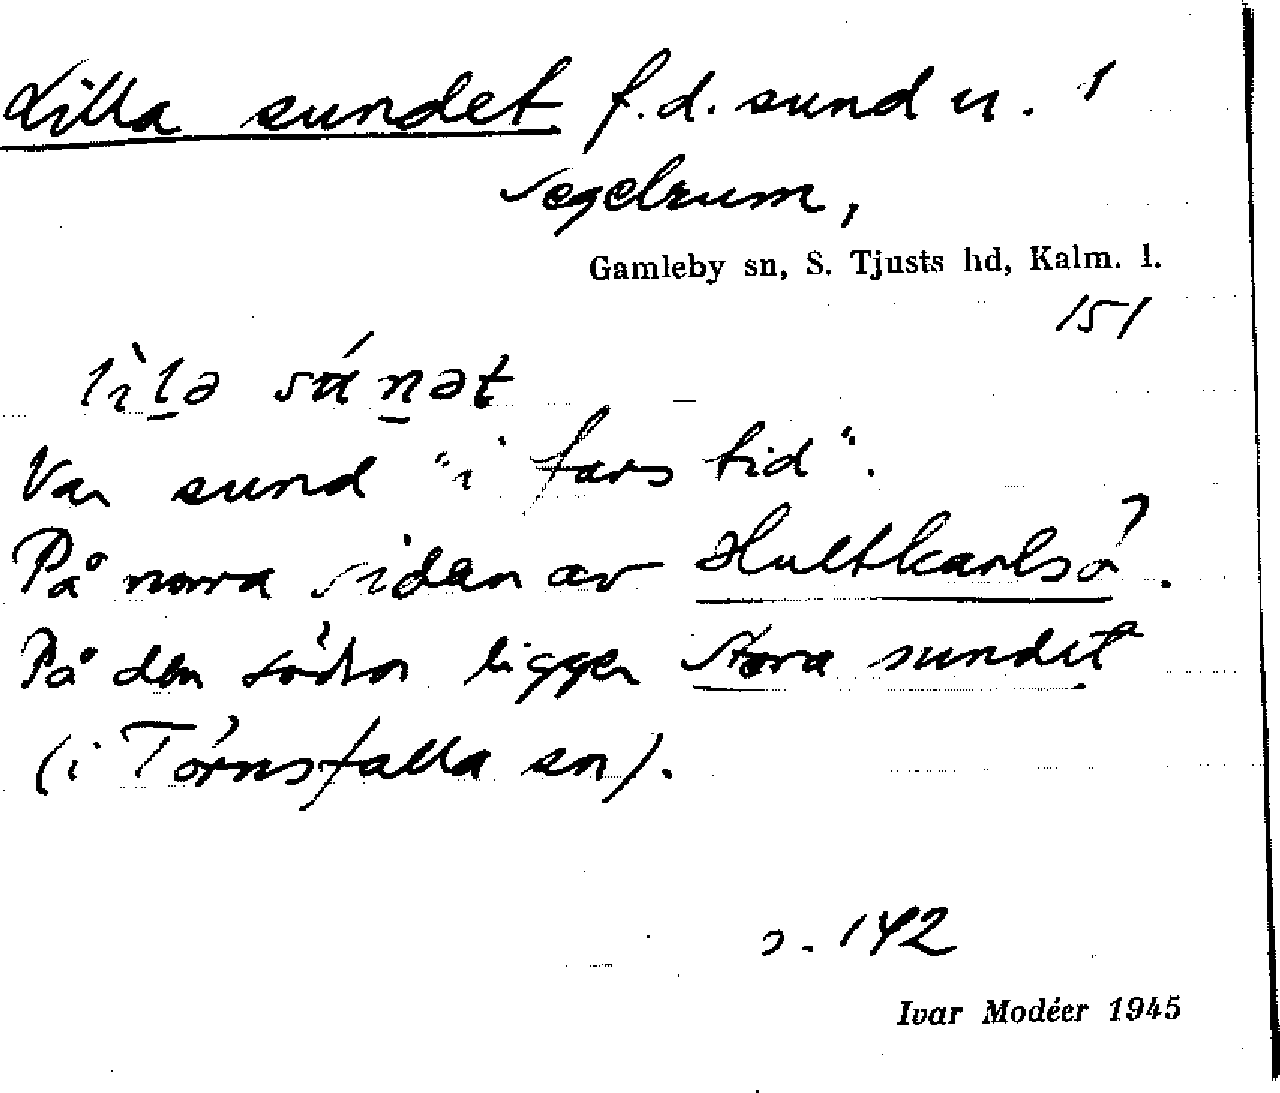 Lilla sundet f.d. sund u. 1
segelrum,
Gamleby sn, S. Tjusts hd, Kalm. l.
151
Var sund "i fars tid".
På norra sidan av Hultkarlsö.
På den södra ligger Stora sundet
(i Törnsfalla sn).
s. 142
Ivar Modéer 1945